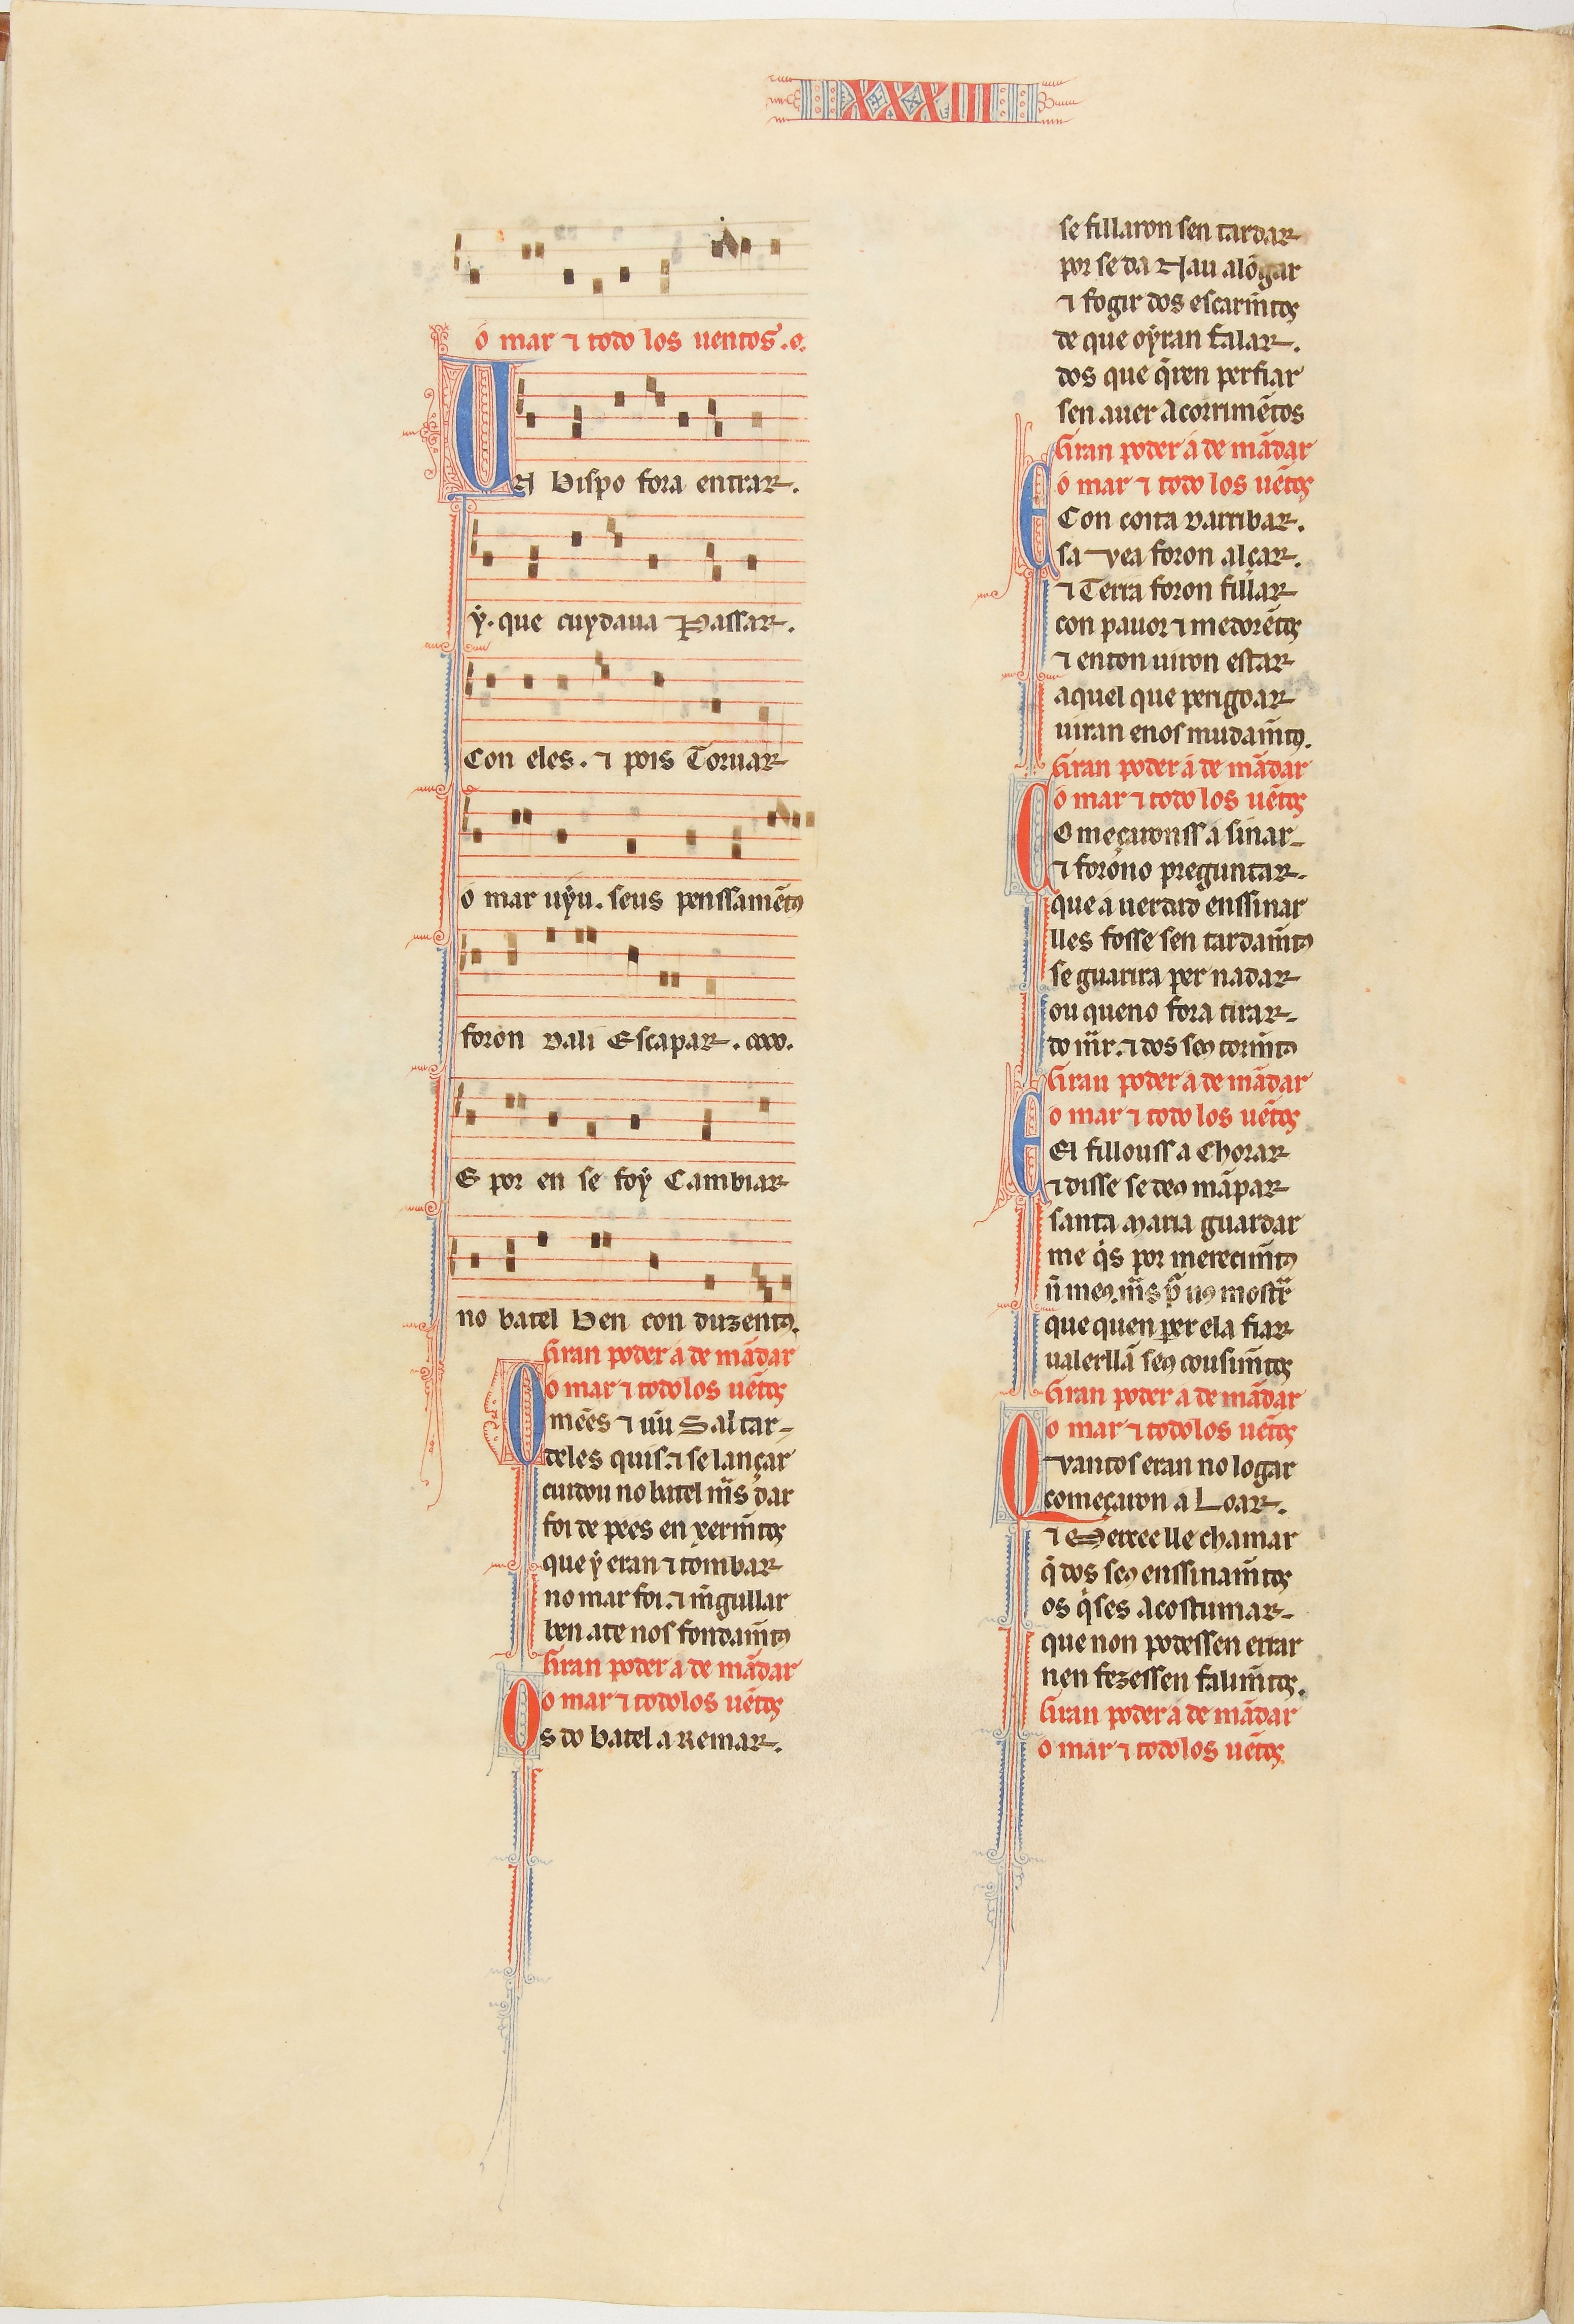 XXXIII
o mar ⁊ todo los uentos. o.
Un bispo fora entrar.
ẏ. que cuydaua Passar.
Con eles. ⁊ pois Tornar
o mar uyu. seus penssamẽtꝯ
foron dali Escapar.
E por en se foẏ Cambiar
no batel ben con duzentꝯ.
Gran poder á de mãdar
o mar ⁊ todo los uẽtos
Omẽes ⁊ uiu Saltar
deles quis. ⁊ se lançar
cuidou no batel m̃s dar
foi de pees en xerm̃tos
que ẏ eran ⁊ tombar
no mar foi. ⁊ m̃gullar
ben ate nos fondam̃tꝯ
Gran poder a de mãdar
o mar ⁊ todo los uẽtos
Os do batel a Remar.
se fillaron sen tardar
por se da Nau alõgar
⁊ fogir dos escarm̃tos
de que oẏran falar.
dos que q̃ren perfiar
sen auer Acorrimẽtos
Gran poder á de mãdar
o mar ⁊ todo los uẽtos
E Con coita darribar.
sa vea foron alçar.
⁊ Terra foron fillar
con pauor ⁊ medorẽtos
⁊ enton uiron estar
aquel que perigoar
uiran enos mudam̃tꝯ.
Gran poder á de mãdar
o mar ⁊ todo los uẽtos
Começaronss a sinar
⁊ forono preguntar.
que a uerdade enssinar
lles fosse sen tardam̃tꝯ
se guarira per nadar
ou queno fora tirar
do m̃r. ⁊ dos seꝯ torm̃tꝯ
Gran poder a de mãdar
o mar ⁊ todo los uẽtos
E El fillouss a Chorar
⁊ disse se deꝯ mãpar
santa maria guardar
me q̇s por merecim̃tꝯ
ñ meꝯ. m̃s
que quen per ela fiar
ualerllã seꝯ cousim̃tos
Gran poder a de mãdar
o mar ⁊ todo los uẽtos
Quantos eran no logar
começaron a Loar.
⁊ Mercee lle chamar
q̇ dos seꝯ enssinam̃tos
os q̇ses Acostumar
que non podessen errar
nen fezessen falim̃tos.
Gran poder á de mãdar
o mar ⁊ todo los uẽtos.